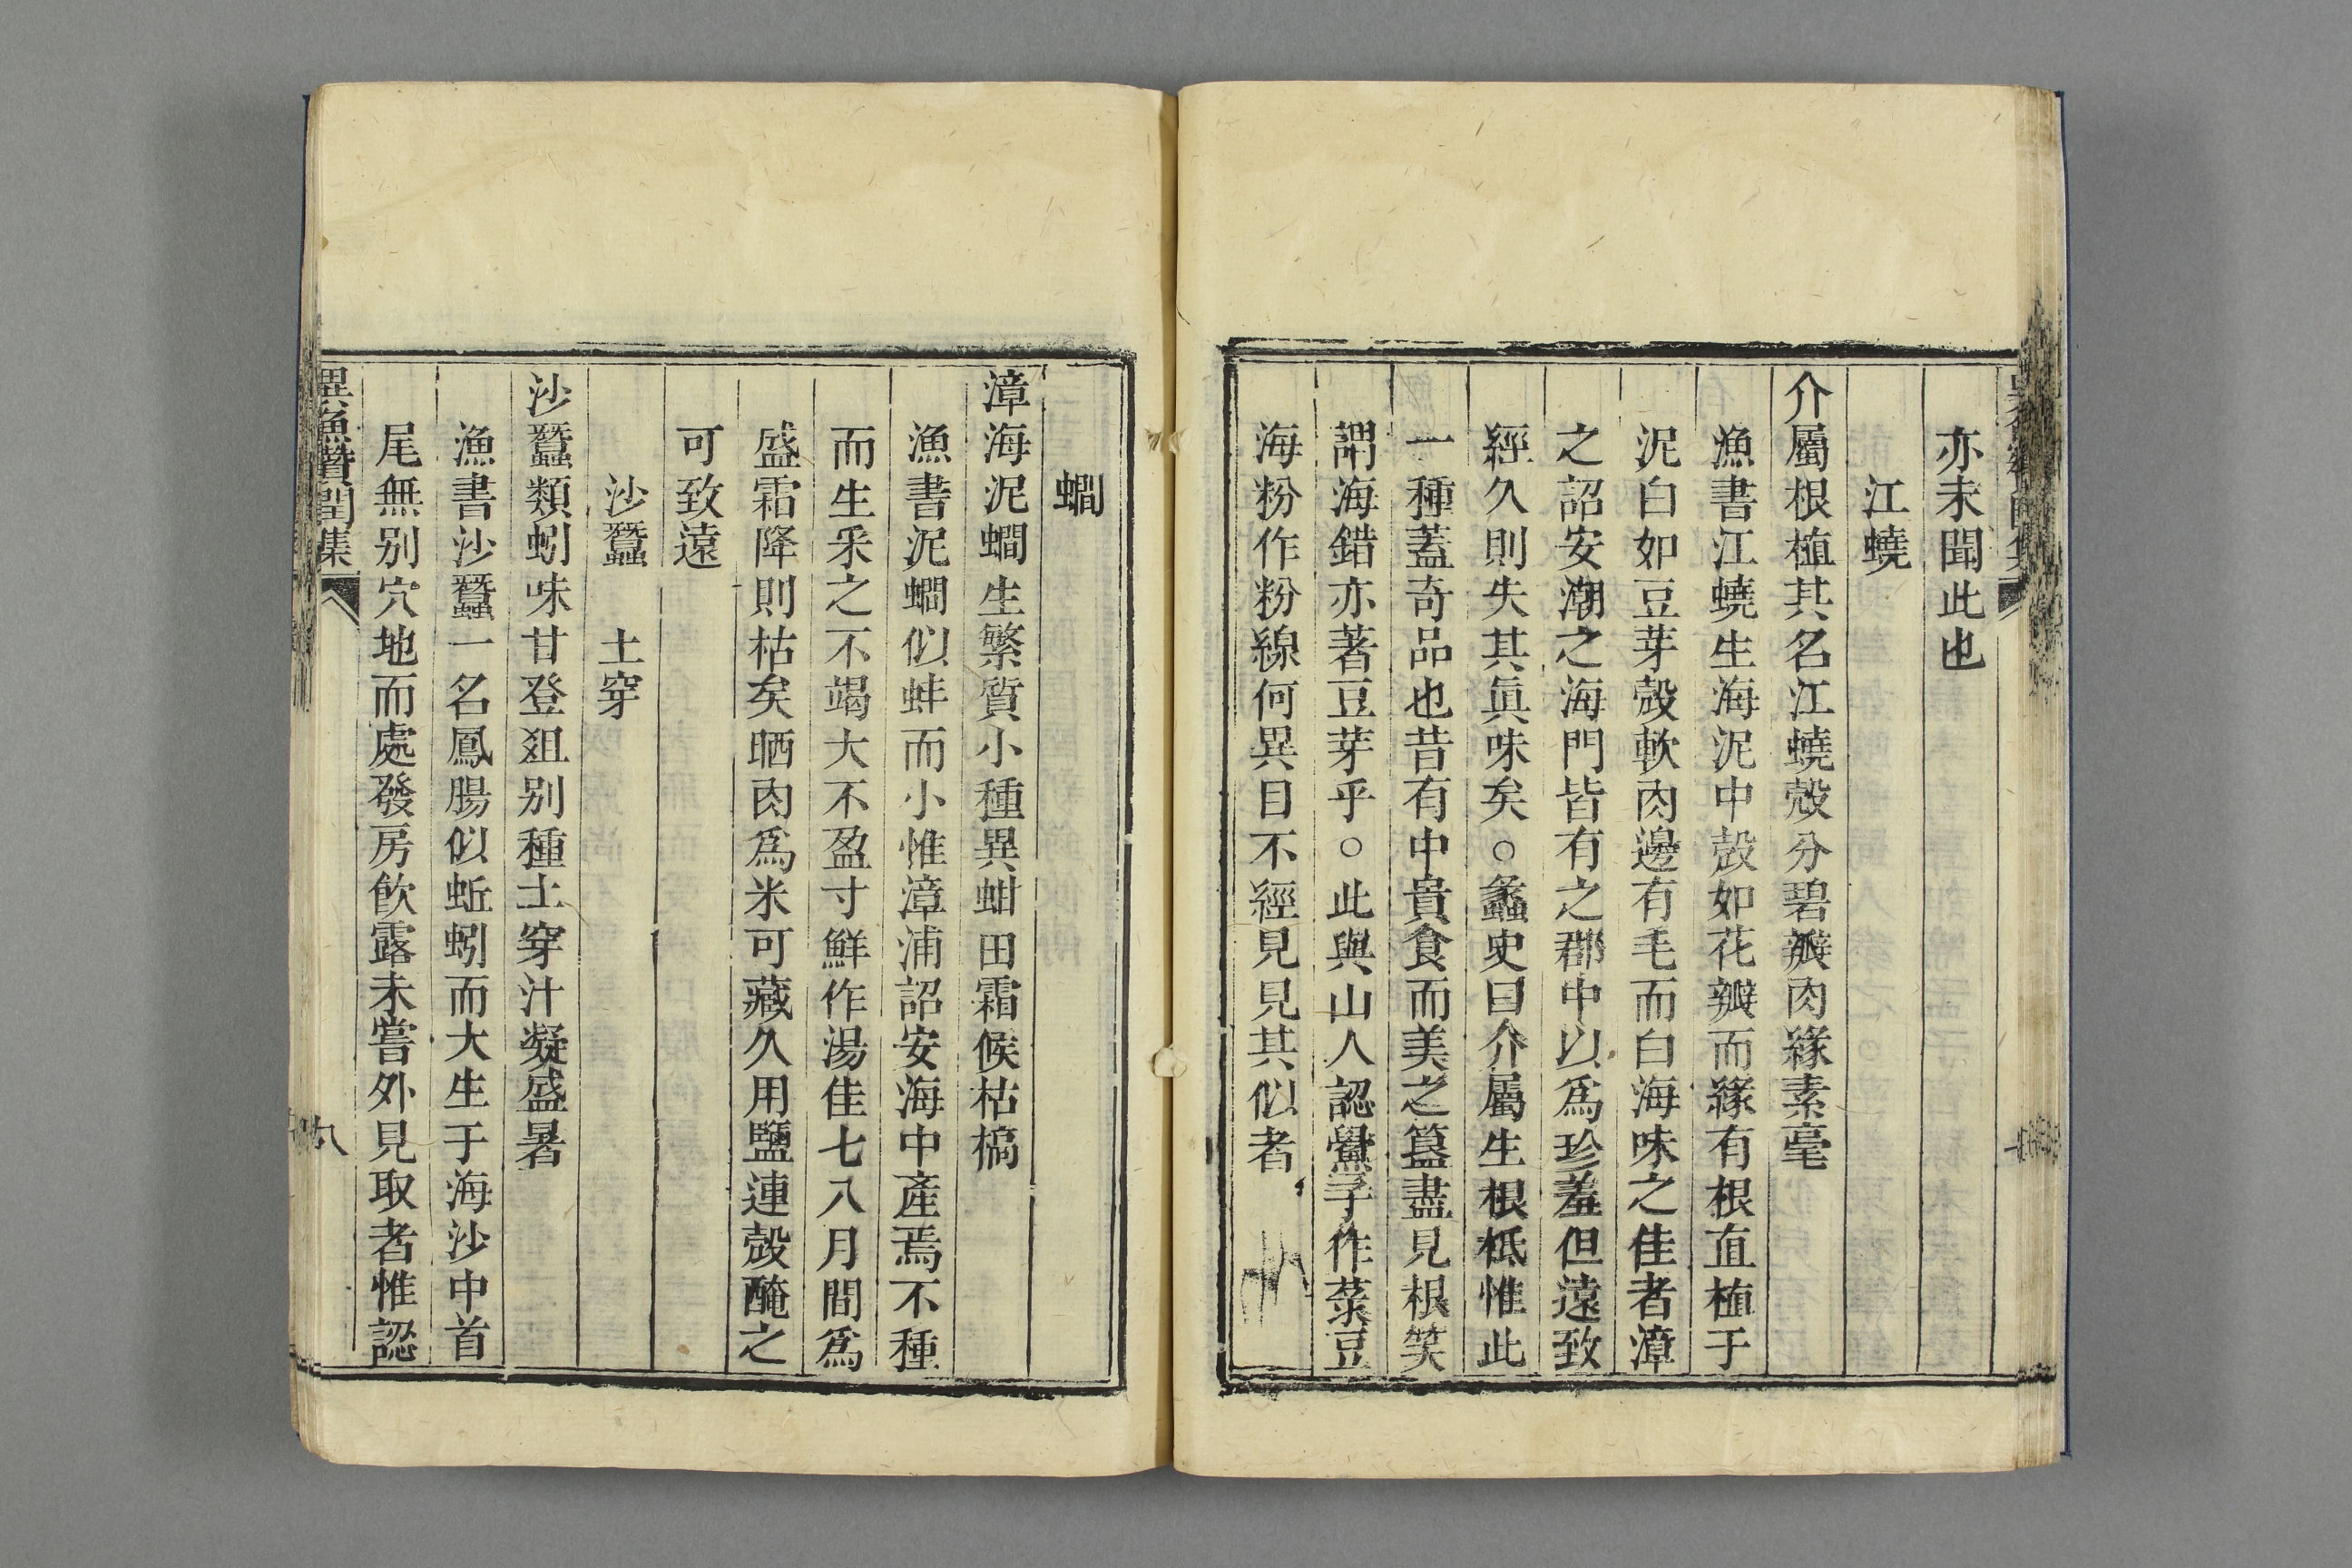 亦未聞此也
江蟯
介屬根植其名江蟯殼分碧瓣肉緣素毫
漁書江蟯生海泥中殼如花瓣而緣有根直植于
泥白如豆芽殼軟肉邊有毛而白海味之佳者漳
之詔安潮之海門皆有之郡中以爲珍羞但遠致
經久則失其眞味矣○蠡史曰介屬生根柢惟此
一種蓋奇品也昔有中貴食而美之簋盡見根笑
謂海錯亦著豆芽乎○此與山人認鱟子作菉豆
海粉作粉線何異目不經見見其似者
蜠
漳海泥蜠生繁質小種異蚶田霜候枯槁
漁書泥蜠似蚌而小惟漳浦詔安海中產焉不種
而生釆之不竭大不盈寸鮮作湯佳七八月間爲
盛霜降則枯矣晒肉爲米可藏久用鹽連殼醃之
可致遠
沙蠶 土穿
沙蠶類蚓味甘登爼别種土穿汁凝盛暑
漁書沙蠶一名鳳腸似蚯蚓而大生于海沙中首
尾無别穴地而處發房飮露未嘗外見取者惟認
異魚贊閏集 八